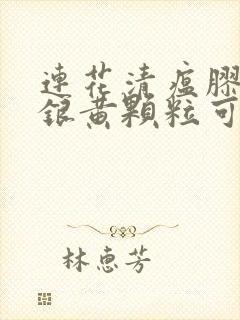 連花清瘟膠
銀黃顆粒可
林惠芳